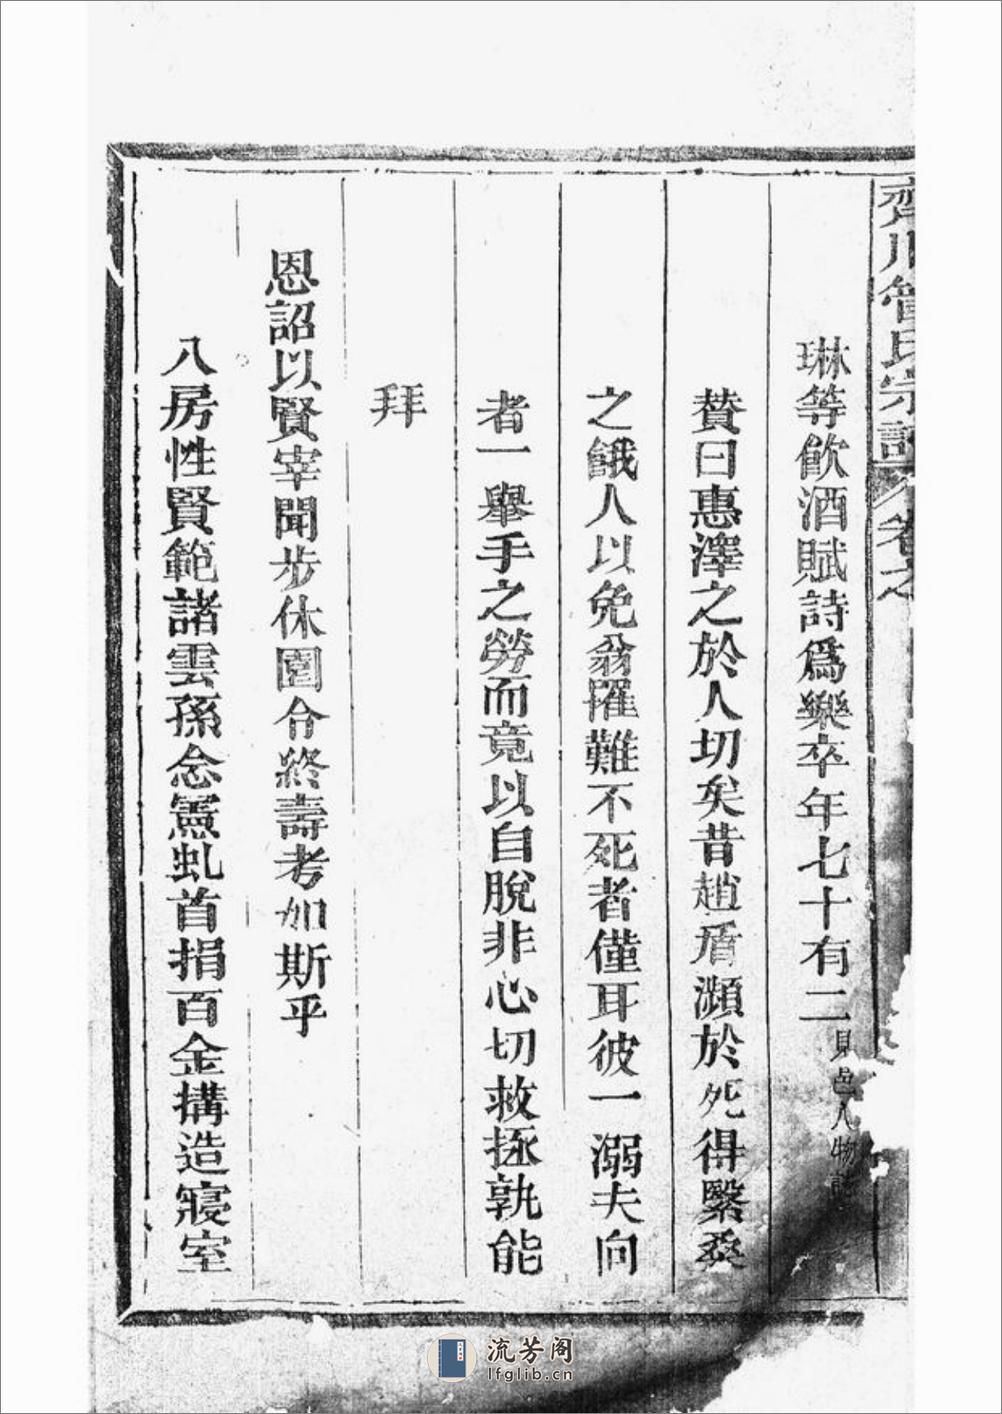 齊川管氏宗譜 卷之
琳等飮酒賦詩爲樂卒年七十有二見邑人物誌
贊曰惠澤之於人切矣昔趙盾瀕於死得繄桑
之餓人以免翁罹難不死者僅耳彼一溺夫向
者一舉手之勞而竟以自脫非心切救拯孰能
拜
恩詔以賢宰聞步休園令終壽考如斯乎
八房性賢範諸雲孫念憲虬首捐百金搆造寢室
流芳阁
lfglib.cn